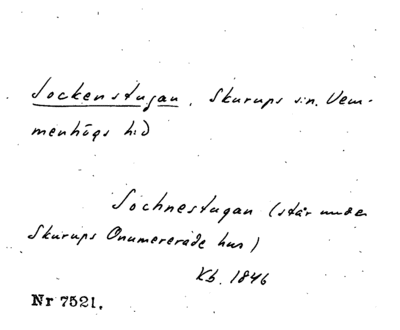 Sockenstugan, Skurups s:n. Vem-
menhögs h:d
Sochnestugan (står under
Skurups Onumererade hus)
Kb. 1846
Nr 7521.